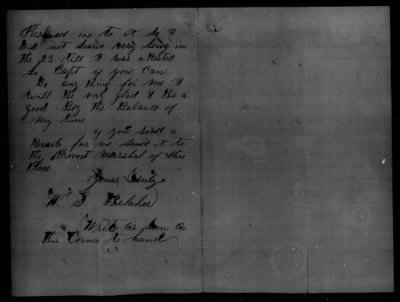 me to it So I
Did not Searve very long in
the 23 till I was arested
So Capt if you Can
Do any thing for me I
will Be very glad I Be a
good Boy the Balance of
my time
if you Send a
for me Send it to
the Provost Marshal of this
Place
Yours
W S Belcher
Write as Son as
this Comes to hand